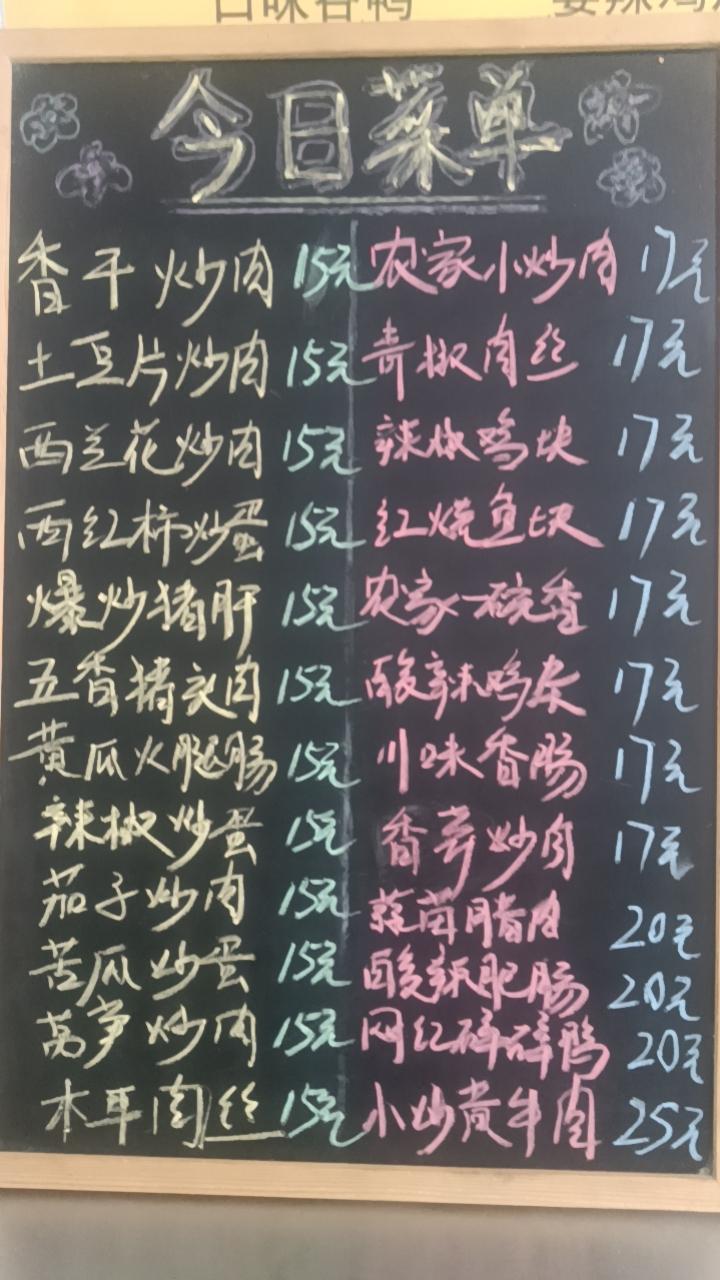 口味香鸭
今日菜单
香干炒肉 15元 农家小炒肉 17元
土豆片炒肉 15元 青椒肉丝 17元
西兰花炒肉 15元 辣椒鸡块 17元
西红柿炒蛋 15元 红烧鱼块 17元
爆炒猪肝 15元 农家一碗香 17元
五香猪头肉 15元 酸辣鸡杂 17元
黄瓜火腿肠 15元 川味香肠 17元
辣椒炒蛋 15元 香芹炒肉 17元
茄子炒肉 15元 蒜苗腊肉 20元
苦瓜炒蛋 15元 酸辣肥肠 20元
莴笋炒肉 15元 网红碎碎鸭 20元
木耳肉丝 15元 小炒黄牛肉 25元